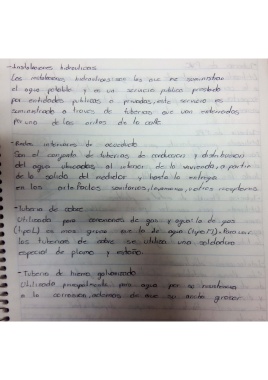 -Instalaciones hidraulicas
Las instalaciones hidraulicas son las que nos suministran
el agua potable y es un servicio publico prestado
por entidades publicas o privadas, este servicio es
suministrado a traves de tuberias que van enterradas
por uno de los lados de la calle
-Redes interiores de acueducto
Son el conjunto de tuberias de conduccion y distribucion
del agua ubicadas al interior de la vivienda a partir
de la salida del medidor y hasta la entrega
en los artefactos sanitarios, lavamanos, u otros receptores
-Tuberia de cobre
Utilizada para conexiones de gas y agua: la de gas
(tipo L) es mas gruesa que la de agua (tipo M). Para unir
las tuberias de cobre se utiliza una soldadura
especial de plomo y estaño.
-Tuberia de hierro galvanizado
Utilizada principalmente para agua por su resistencia
a la corrosion, ademas de que su